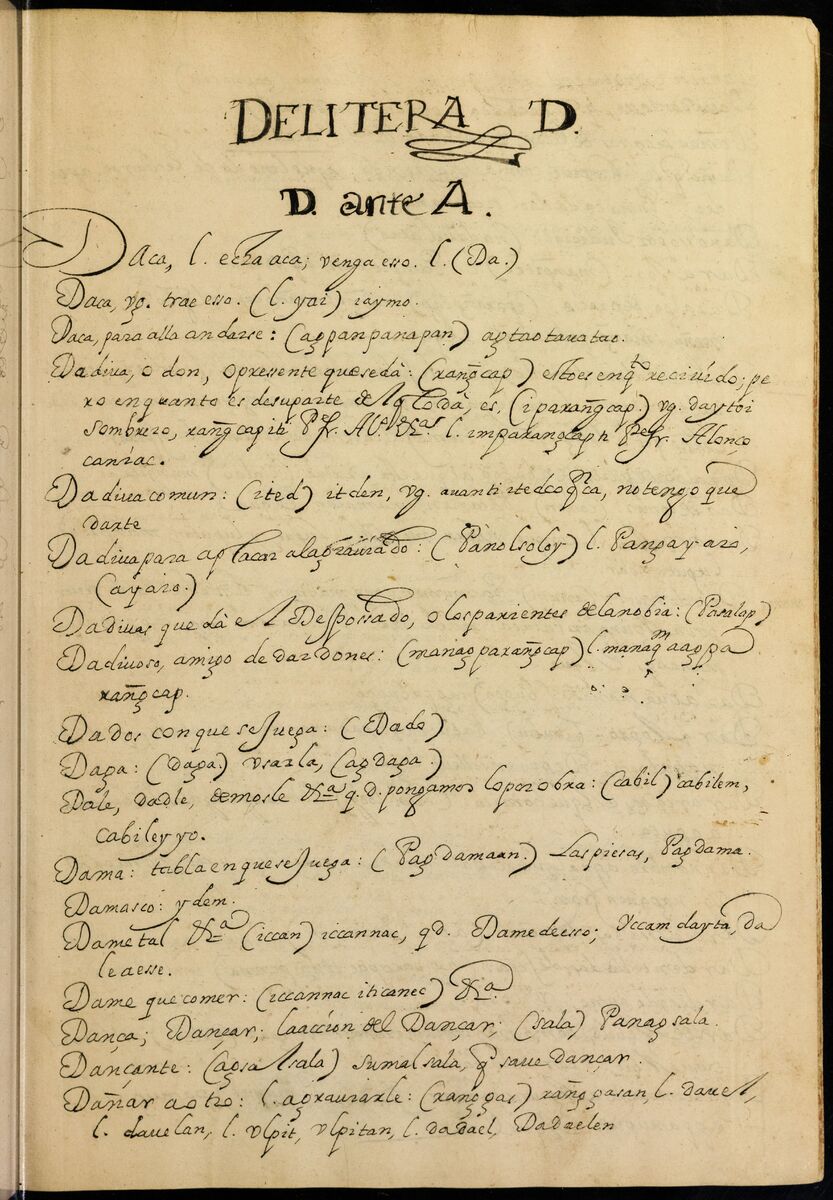 DELITERA D.
D. ante A.
DAca, l. echa aca; venga esso. l. (Da.)
Daca, vg. trae esso. (l. yai) iaymo.
Daca, para alla andarse: (agpanpanapan) agtaotauatao.
Dadiua, o don, o presente que se dà: (rang̃cap) esto es en qto reciuido; pe
ro en quanto es de su parte del q̃ lo dà, es, (iparang̃cap.) vg. daytoi
sombrero, rang̃capiti Pe fr. Al.º &.as l. imparangcap ti Pe fr. Alonço
caniac.
Dadiua comun: (ited) itden, vg. auanti itedco , no tengo que
darte
Dadiua para aplacar al agrauiado: (Panolsoloy) l. Pangayaro,
(ayaro.)
Dadiuas que dà el Desposado, o los parientes de la nobia: (Pasalap)
Dadiuoso, amigo de dar dones: (managparang̃cap) l. manaqm aagpa
rang̃cap.
Dados con que se Juega: (Dado)
Daga: (daga.) vsarla, (agdaga.)
Dale, dadle, demosle &.a q. d. pongamos lo por obra: (cabil) cabilem,
cabileyyo.
Dama: tabla en que se Juega: (Pagdamaan.) Las piesas, Pagdama.
Damasco: ydem.
Dame tal &.a (iccan) iccannac, qd. Dame de esso; Yccam dayta, da
le a esse.
Dame que comer: (iccannac iti canec) &.a
Dança; Dançar; la accion del Dançar; (sala) Panagsala.
Dançante: (agsalsala) sumalsala, q̃ saue dançar.
Dañar a otro: l. agrauiarle: (rang̃gas) rang̃gasan, l. dauel,
l. dauelan, l. vlpit, vlpitan, l. dadael, Dadaelen